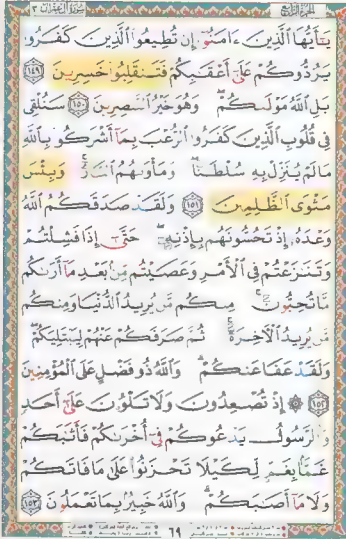 سُورَةُ آلِ عِمْرَان ٣ الجُزْءُ الرَّابِعُ
يَٰٓأَيُّهَا ٱلَّذِينَ ءَامَنُوٓا۟ إِن تُطِيعُوا۟ ٱلَّذِينَ كَفَرُوا۟
يَرُدُّوكُمْ عَلَىٰٓ أَعْقَٰبِكُمْ فَتَنقَلِبُوا۟ خَٰسِرِينَ ١٤٩
بَلِ ٱللَّهُ مَوْلَىٰكُمْ وَهُوَ خَيْرُ ٱلنَّٰصِرِينَ ١٥٠ سَنُلْقِى
فِى قُلُوبِ ٱلَّذِينَ كَفَرُوا۟ ٱلرُّعْبَ بِمَآ أَشْرَكُوا۟ بِٱللَّهِ
مَا لَمْ يُنَزِّلْ بِهِۦ سُلْطَٰنًا وَمَأْوَىٰهُمُ ٱلنَّارُ وَبِئْسَ
مَثْوَى ٱلظَّٰلِمِينَ ١٥١ وَلَقَدْ صَدَقَكُمُ ٱللَّهُ
وَعْدَهُۥٓ إِذْ تَحُسُّونَهُم بِإِذْنِهِۦ حَتَّىٰٓ إِذَا فَشِلْتُمْ
وَتَنَٰزَعْتُمْ فِى ٱلْأَمْرِ وَعَصَيْتُم مِّنۢ بَعْدِ مَآ أَرَىٰكُم
مَّا تُحِبُّونَ مِنكُم مَّن يُرِيدُ ٱلدُّنْيَا وَمِنكُم
مَّن يُرِيدُ ٱلْءَاخِرَةَ ثُمَّ صَرَفَكُمْ عَنْهُمْ لِيَبْتَلِيَكُمْ
وَلَقَدْ عَفَا عَنكُمْ وَٱللَّهُ ذُو فَضْلٍ عَلَى ٱلْمُؤْمِنِينَ
١٥٢ ۞ إِذْ تُصْعِدُونَ وَلَا تَلْوُۥنَ عَلَىٰٓ أَحَدٍ
وَٱلرَّسُولُ يَدْعُوكُمْ فِىٓ أُخْرَىٰكُمْ فَأَثَٰبَكُمْ
غَمًّۢا بِغَمٍّ لِّكَيْلَا تَحْزَنُوا۟ عَلَىٰ مَا فَاتَكُمْ
وَلَا مَآ أَصَٰبَكُمْ وَٱللَّهُ خَبِيرٌۢ بِمَا تَعْمَلُونَ ١٥٣
٦٩